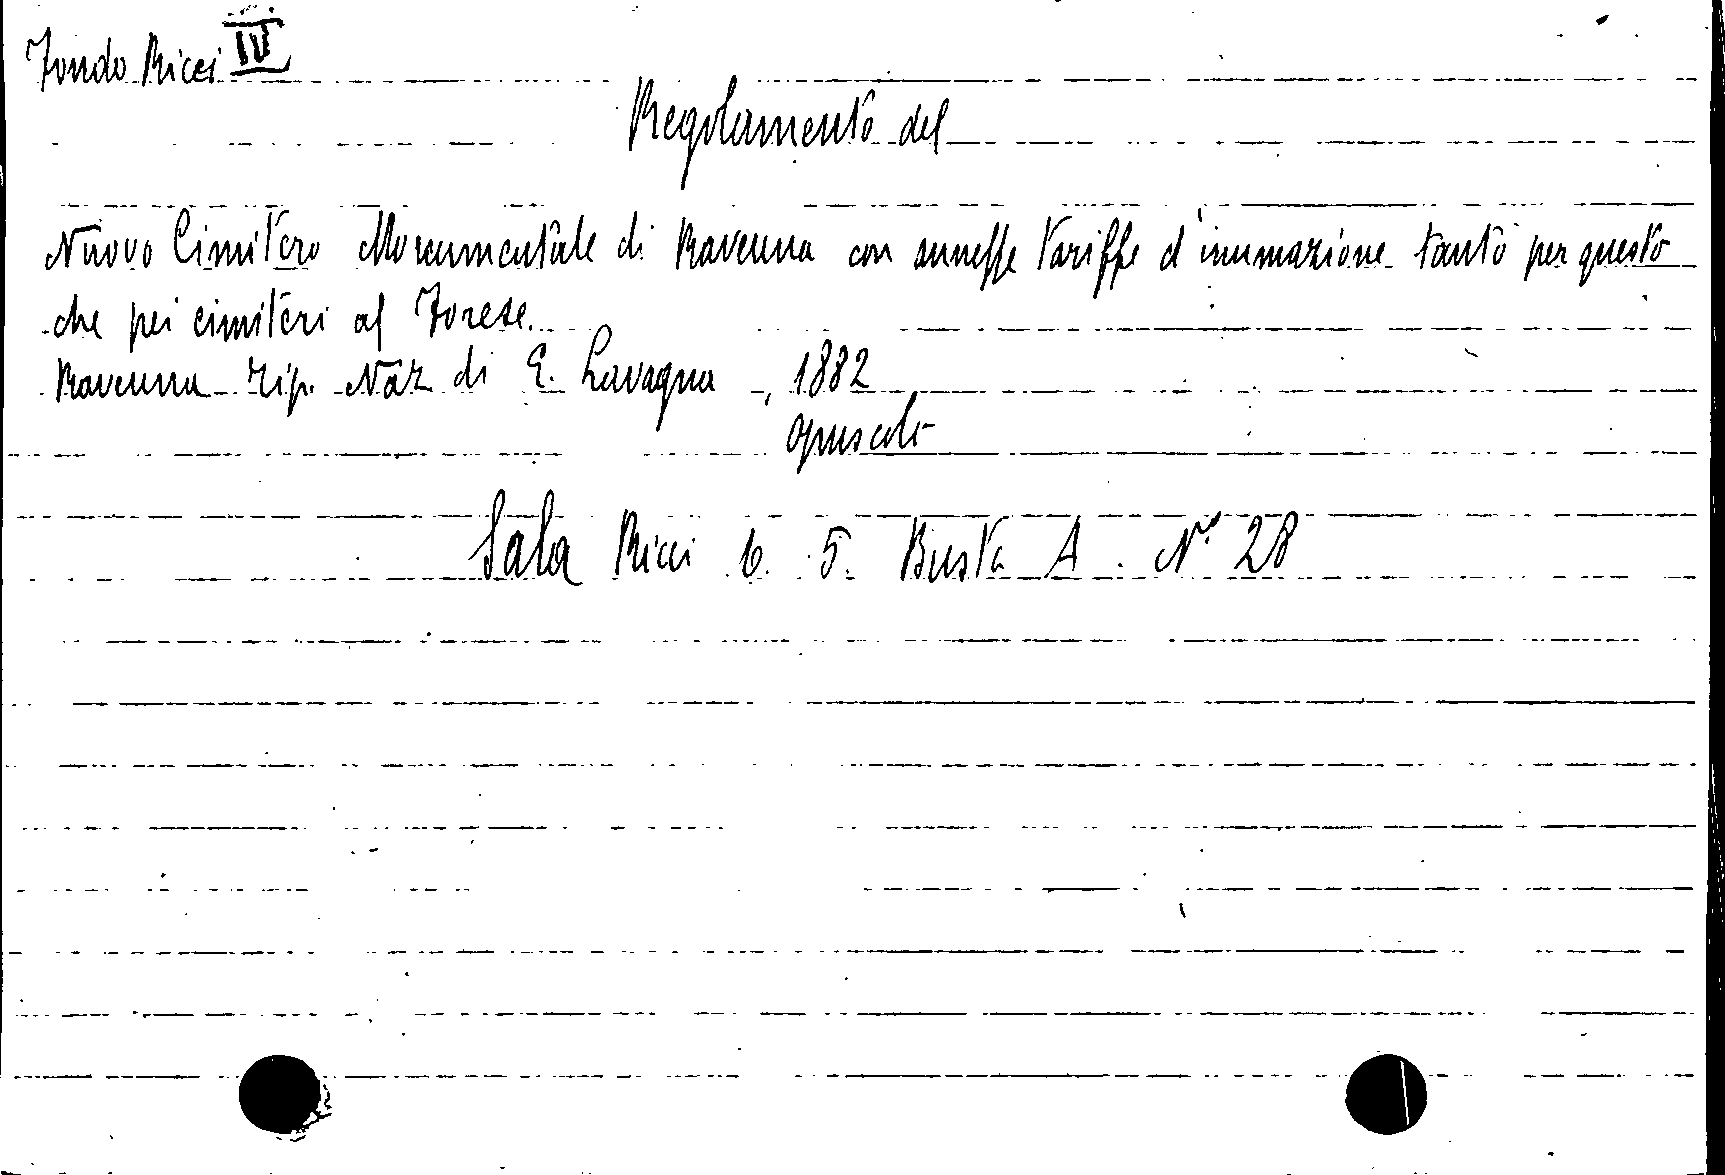 Fondo Ricci IV
Regolamento del
Nuovo Cimitero Monumentale di Ravenna con annesse tariffe d'inumazione tanto per questo
che pei cimiteri al Forese.
Ravenna Tip. Naz di E. Lavagna, 1882
opuscolo
Sala Ricci 6. 5. Busta A. N° 28